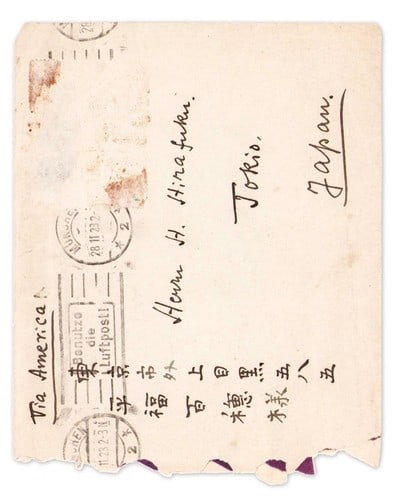 Via America!
MÜNCHEN
28 11 23 2-
* 2 *
Benutze
die
Luftpost!
11 23 2-3 N
* 2 *
Herrn H. Hirafuku.
Tokio.
Japan.
東京市外上目黒五八五
平福百穂様